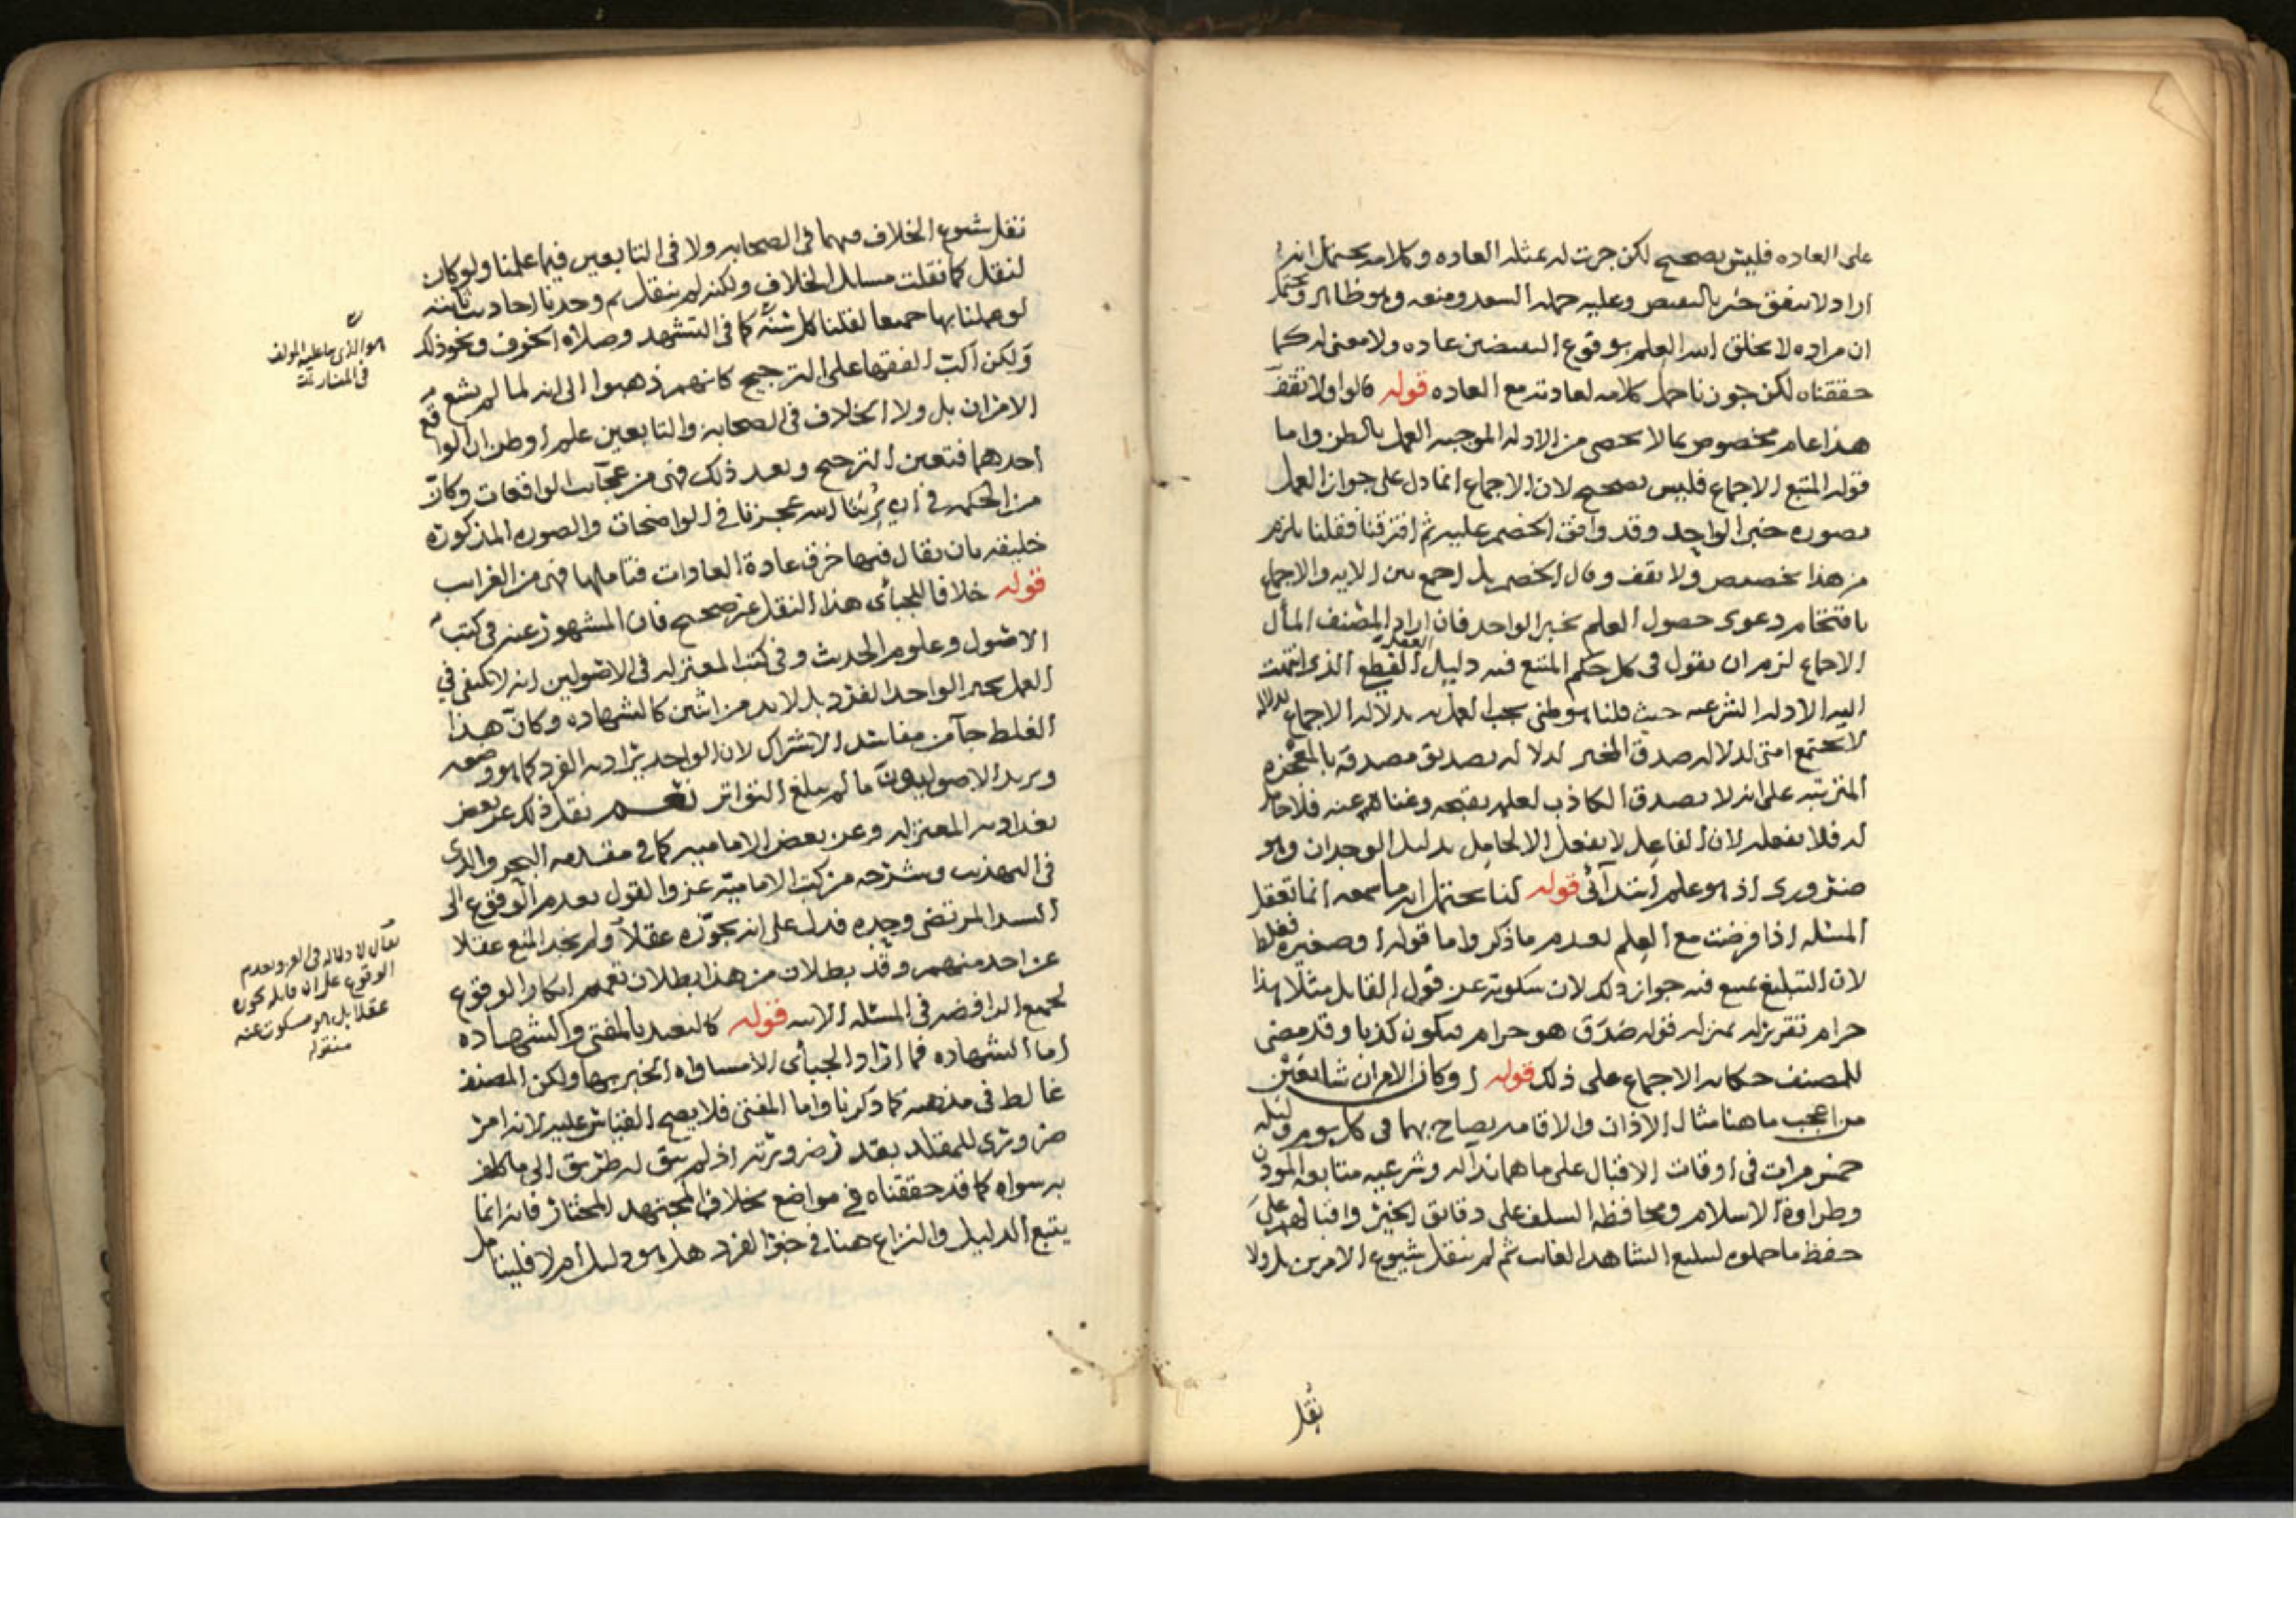 على العاده فليس بصحيح لكن جرت له بمثله العاده وكلامه يحتمل انه
اراد لا يتفق خبر بالنقيض وعليه حمله السعد ومنعه وهو ظاهر ويحتمل
ان مراده لا يخلق الله العلم بوقوع النقيضين عاده ولا معنى له كما
حققناه لكن جوزنا حمل كلامه لعادته مع العاده قوله قالوا ولا تقف
هذا عام مخصوص بما لا يحصى من الادله الموجبه العمل بالظن واما
قوله المتبع الاجماع فليس بصحيح لان الاجماع انما دل على جواز العمل
بصوره خبر الواحد وقد وافق الخصم عليه ثم افترقنا فقلنا يلزم
من هذا تخصيص ولا تقف وقال الخصم بل اجمع بين الايه والاجماع
باقتحام دعوى حصول العلم بخبر الواحد فان اراد المصنف المأل
الاجماع لزم ان يقول في كل حكم المتبع فيه دليل العقل القطع الذي انتهت
اليه الادله الشرعيه حيث قلنا هو ظني يجب العمل به بدلاله الاجماع بدلاله
لا تجتمع امتي لدلاله صدق المخبر لدلاله تصديق مصدقه بالمعجزه
المترتبه على انه لا يصدق الكاذب لعلمه بقبحه وغناه عنه فلا حامل
له فلا يفعله لان الفاعل لا يفعل الا لحامل بدليل الوجدان وهو
ضروري اذ هو علم ابتدآئي قوله لنا يحتمل انه ما سمعه انما تعقل
المسئله اذا فرضت مع العلم بعدم ما ذكر واما قوله او صغيره فغلط
لان التبليغ يمنع فيه جواز ذلك لان سكوته عن قول القايل مثلا هذا
حرام تقرير له بمنزله قوله صدق هو حرام فيكون كذبا وقد مضى
للمصنف حكايه الاجماع على ذلك قوله او كان الامران شايعين
من اعجب ما هنا مثال الاذان والاقامه يصاح بهما في كل يوم وليله
خمس مرات في اوقات الاقبال على ما هما ندا له وشرعيه متابعه الموذن
وطراوة الاسلام ومحافظه السلف على دقائق الخير واقبالهم على
حفظ ما حملوه ليبلغ الشاهد الغائب ثم لم ينقل شيوع الامرين بل ولا
نقل
نقل شيوع الخلاف فيهما في الصحابه ولا في التابعين فيما علمنا ولو كان
لنقل كما نقلت مسائل الخلاف ولكنه لم ينقل ثم وجدنا احاديث ثابته
لو عملنا بها جميعا لقلنا كل سنّه كما في التشهد وصلاه الخوف ونحو ذلك
ولكن اكب الفقها على الترجيح كانهم ذهبوا الى انه لما لم يشع
الامران بل ولا الخلاف في الصحابة والتابعين علم او ظن ان الواقع
احدهما فتعين الترجيح وبعد ذلك فهي من عجآئب الواقعات وكانّ
من الحكمه في ان يُرينا الله عجزنا في الواضحات والصوره المذكورة
خليقه بان يقال فيها خرق عادة العادات فتاملها فهي من الغرايب
قوله خلافا للجبأي هذا النقل غير صحيح فان المشهور عنه في كتب
الاصول وعلوم الحديث وفي كتب المعتزله في الاصولين انه لا يكتفي في
العمل بخبر الواحد الفرد بل لا بد من اثنين كالشهاده وكانّ هذا
الغلط جآ من مفاسد الاشتراك لان الواحد يراد به الفرد كما هو وضعه
ويريد الاصوليون ما لم يبلغ التواتر نعم نقل ذلك عن بعض
بغداديه المعتزله وعن بعض الاماميه كما في مقدمه البحر والذي
في التهذيب وشرحه من كتب الاماميّه عزوا القول بعدم الوقوع الى
السيد المرتضى وحده فدل على انه يجوّزه عقلاً ولم يجد المنع عقلا
عن احد منهم وقد بطلان من هذا بطلان تعميم انكار الوقوع
لجميع الرافضه في المسئله الاتيه قوله كالتعبد بالمفتي والشهاده
اما الشهاده فما اراد الجبأي الا مساواه الخبر بها ولكن المصنف
غالط في مذهبه كما ذكرنا واما المفتي فلا يصح القياس عليه لانه امر
ضروري للمقلد بقدر ضرورته اذ لم يبق له طريق الى ما كلف
به سواه كما قد حققناه في مواضع بخلاف المجتهد المختار فانه انما
يتبع الدليل والنزاع هنا في خبر الفرد هل هو دليل أم لا فليتامل
هو الذي بنا عليه المولف
في المنار تمت
يقال لا دلاله في القول بعدم
الوقوع على ان قايله يجوزه
عقلا بل هو مسكوت عنه